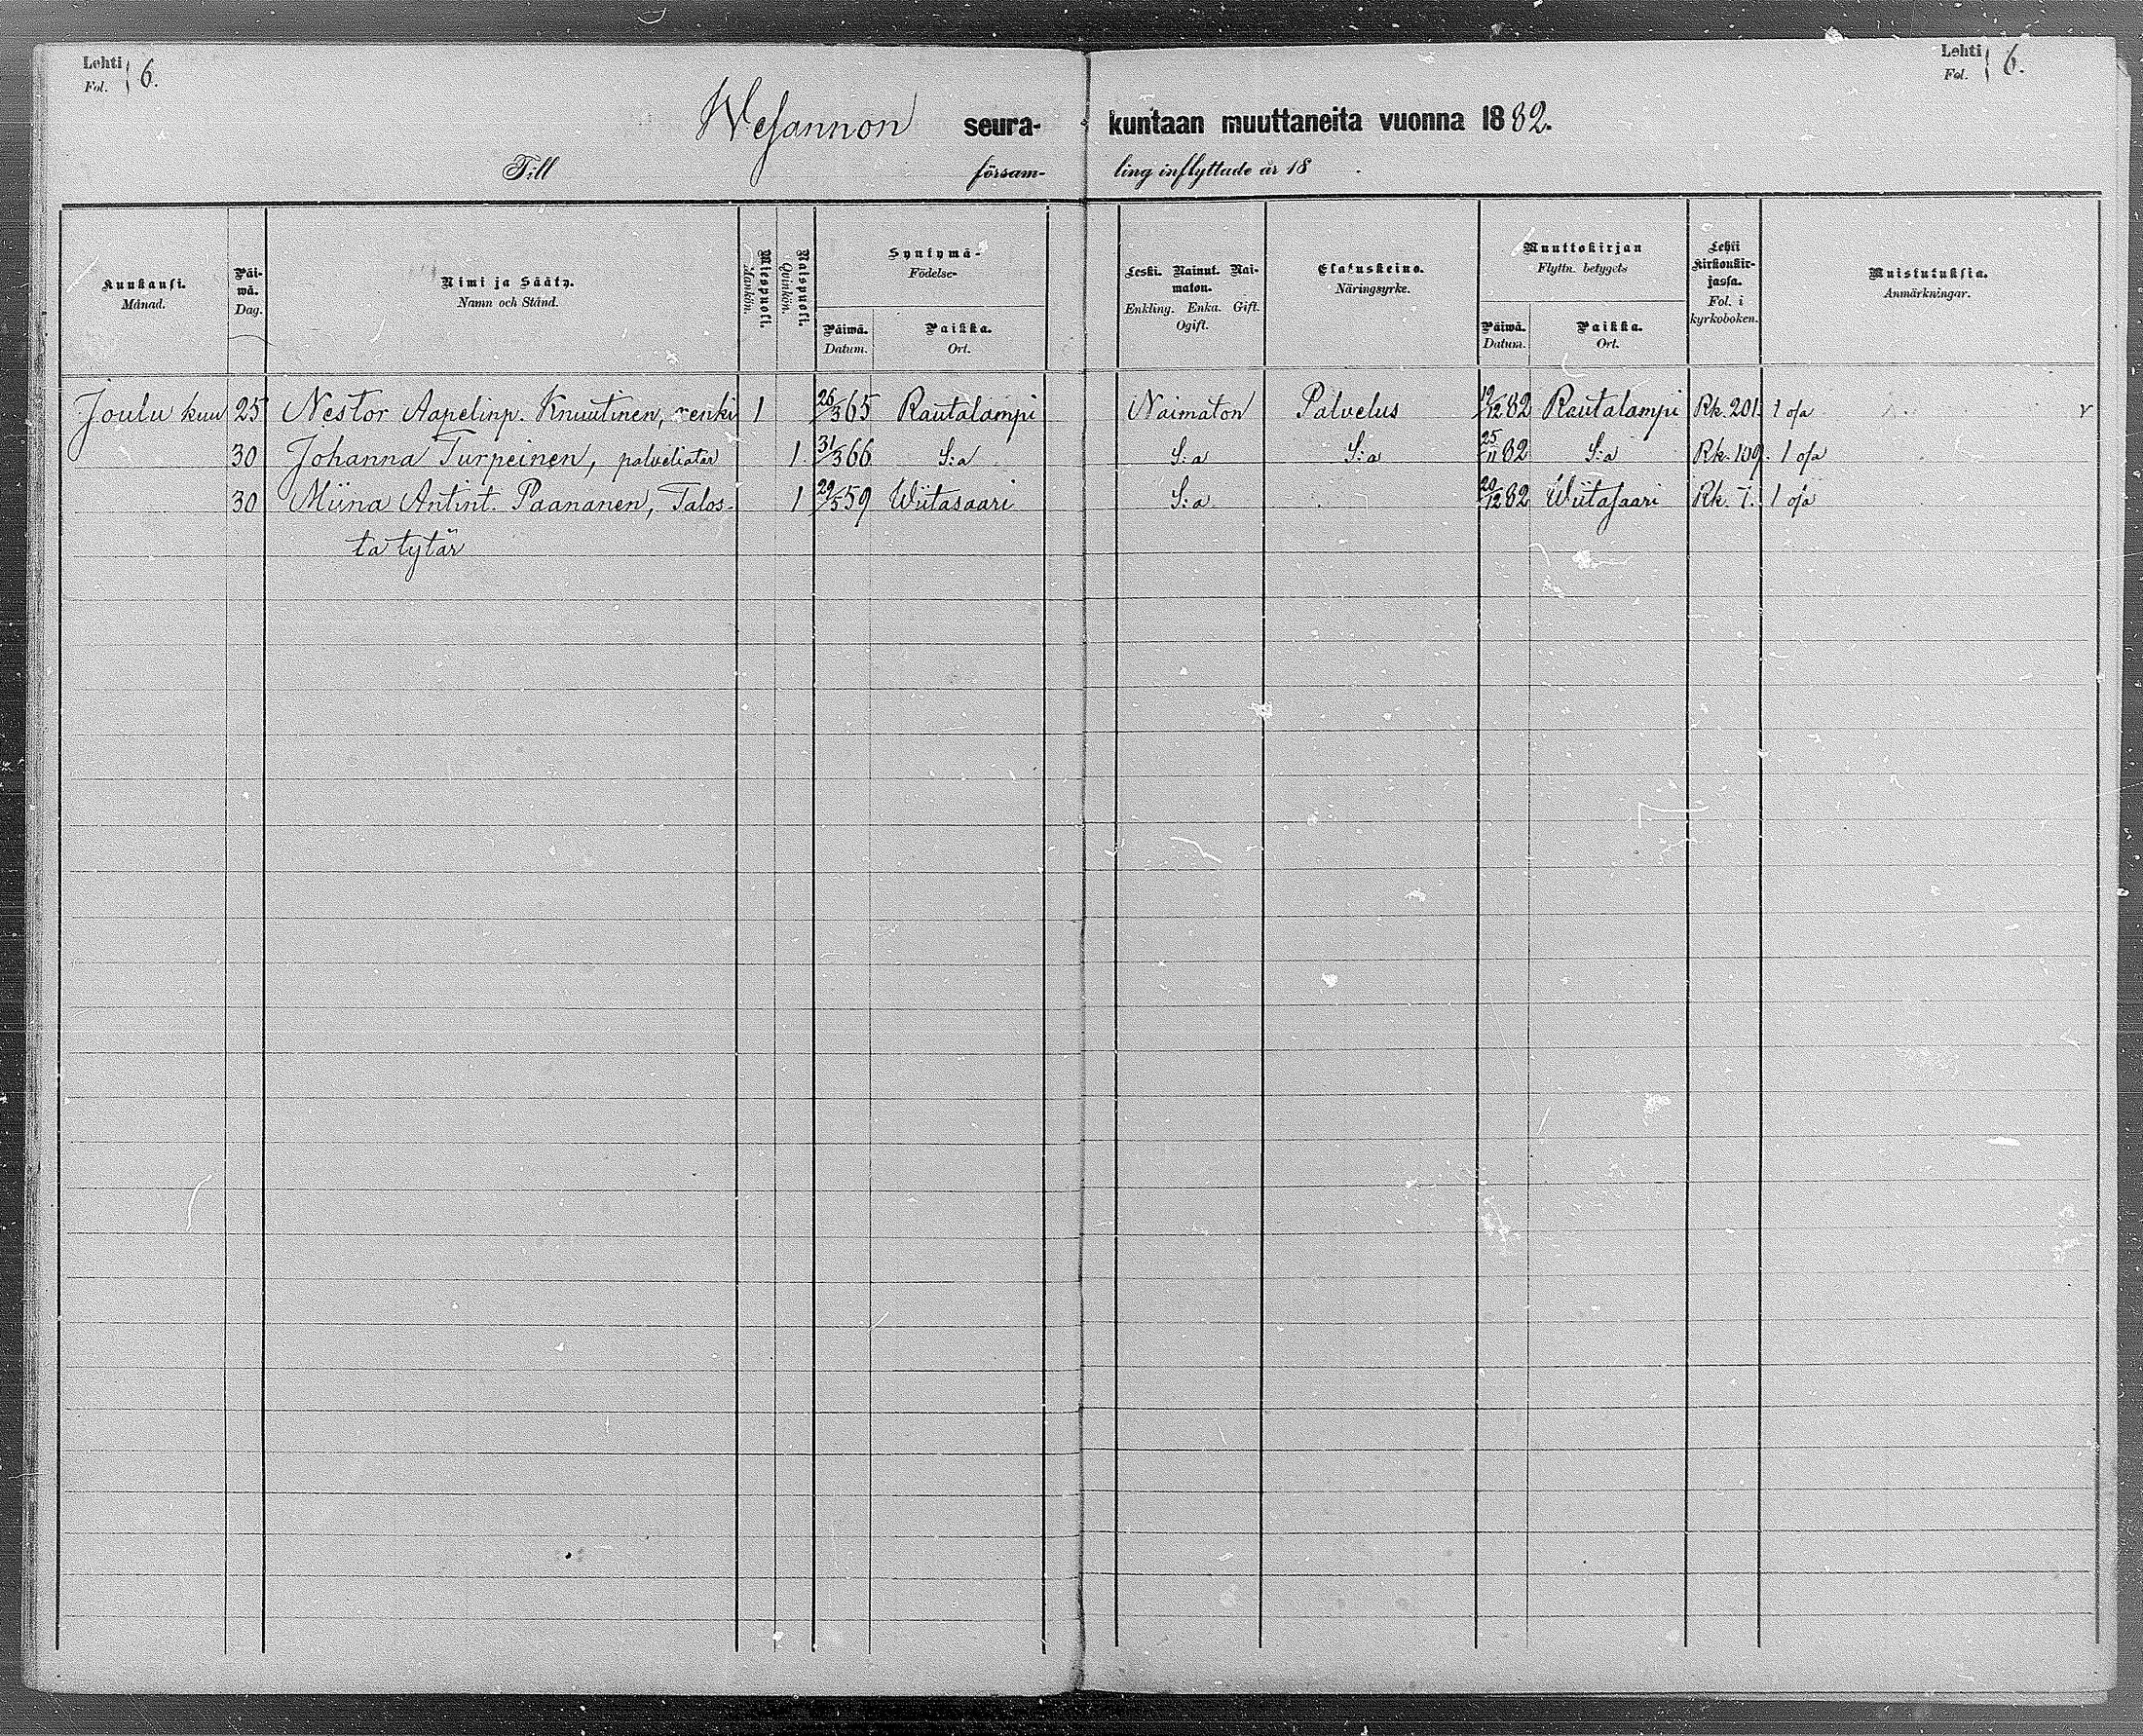 Lehti Fol. } 6.
Lehti Fol. } 6.
Wesannon seura- kuntaan muuttaneita vuonna 1882.
Till försam- ling inflyttade år 18 .
Kuukausi. Månad.
Päi- wä. Dag.
Nimi ja Sääty. Namn och Stånd.
Miespuoli. Mankön.
Naispuoli. Qvinkön.
Syntymä- Födelse-
Päiwä. Datum.
Paikka. Ort.
Leski. Nainut. Nai- maton. Enkling. Enka. Gift. Ogift.
Elatuskeino. Näringsyrke.
Muuttokirjan Flyttn. betygets
Päiwä. Datum.
Paikka. Ort.
Lehti Kirkonkir- jassa. Fol. i kyrkoboken.
Muistutuksia. Anmärkningar.
Joulu kuu 25 Nestor Aapelinp. Knuutinen, renki 1 26/3 65 Rautalampi Naimaton Palvelus 12/12 82 Rautalampi Rk. 201. 1 o/a v
30 Johanna Turpeinen, palveliatar 1. 31/3 66 S:a S:a S:a 25/11 82 S:a Rk. 109. 1 o/a
30 Miina Antint. Paananen, Talos- 1 29/5 59 Wiitasaari S:a 20/12 82 Wiitasaari Rk. 7. 1 o/a
ta tytär